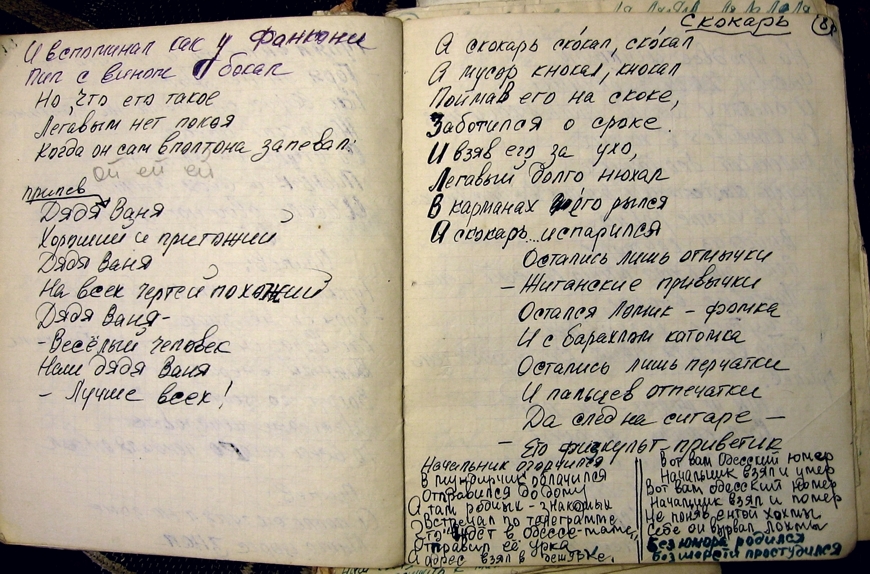 И вспоминал как у Фанкони
Пил с вином бокал
Но, что ето такое
Легавым нет покоя
Когда он сам вполтона запевал:
Ой ей ей
припев
Дядя Ваня
Хороший и пригожий
Дядя Ваня
На всех чертей похожий
Дядя Ваня-
- Весёлый человек
Наш дядя Ваня
- Лучше всех!
Скокарь 8
А скокарь ско́кал, ско́кал
А мусор кнокал, кнокал
Поймав его на скоке,
Заботился о сроке.
И взяв его за ухо,
Легавый долго нюхал
В карманах его рылся
А скокарь... испарился
Остались лишь отмычки
- Жиганские привычки
Остался Ломик - фомка
И с барахлом котомка
Остались лишь перчатки
И пальцев отпечатки
Да след на ситаре -
- Его физкульт приветик
Начальник огорчился
В мундирчик облачился
Отправился до дому
А там родных - знакомых
Встречал по телеграмме
Что будет в Одессе-маме,
Отправил её урка
А адрес взял в
Вот вам Одесский юмер
Начальник взял и умер
Вот вам одесский номер
Начальник взял и помер
Не поняв ентой хохмы
Себе он вырвал Лохмы
Без юмора родился
без шерсти простудился